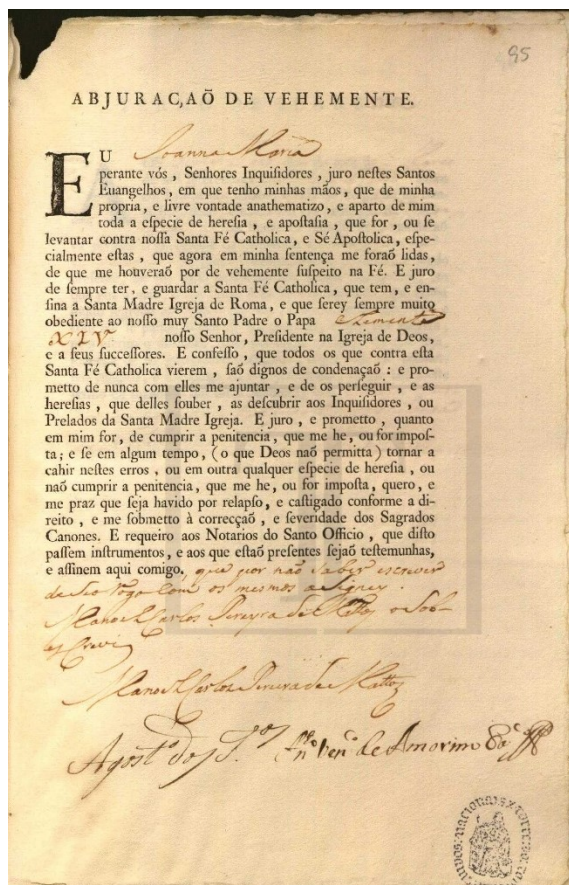 95
ABJURAÇAÕ DE VEHEMENTE.
EU Joanna Maria
perante vós, Senhores Inquiſidores, juro neſtes Santos
Euangelhos, em que tenho minhas mãos, que de minha
propria, e livre vontade anathematizo, e aparto de mim
toda a eſpecie de hereſia, e apoſtaſia, que for, ou ſe
levantar contra noſſa Santa Fé Catholica, e Sé Apoſtolica, eſpe-
cialmente eſtas, que agora em minha ſentença me foraõ lidas,
de que me houveraõ por de vehemente ſuſpeito na Fé. E juro
de ſempre ter, e guardar a Santa Fé Catholica, que tem, e en-
ſina a Santa Madre Igreja de Roma, e que ſerey ſempre muito
obediente ao noſſo muy Santo Padre o Papa Clemente
XIV noſſo Senhor, Preſidente na Igreja de Deos,
e a ſeus ſucceſſores. E confeſſo, que todos os que contra eſta
Santa Fé Catholica vierem, ſaõ dignos de condenaçaõ: e pro-
metto de nunca com elles me ajuntar, e de os perſeguir, e as
hereſias, que delles ſouber, as deſcubrir aos Inquiſidores, ou
Prelados da Santa Madre Igreja. E juro, e prometto, quanto
em mim for, de cumprir a penitencia, que me he, ou for impoſ-
ta; e ſe em algum tempo, (o que Deos naõ permitta) tornar a
cahir neſtes erros, ou em outra qualquer eſpecie de hereſia, ou
naõ cumprir a penitencia, que me he, ou for impoſta, quero, e
me praz que ſeja havido por relapſo, e caſtigado conforme a di-
reito, e me ſobmetto à correcçaõ, e ſeveridade dos Sagrados
Canones. E requeiro aos Notarios do Santo Officio, que diſto
paſſem inſtrumentos, e aos que eſtaõ preſentes ſejaõ teſtemunhas,
e aſſinem aqui comigo, que por não Saber escrever
de Seo Rogo Com os mesmos aSigney.
Manoel Carlos Pereyra de Mattos o Sob-
escrevi
Manoel Carlos Pereira de Mattos
Agost.º dos S.tos de Amorim